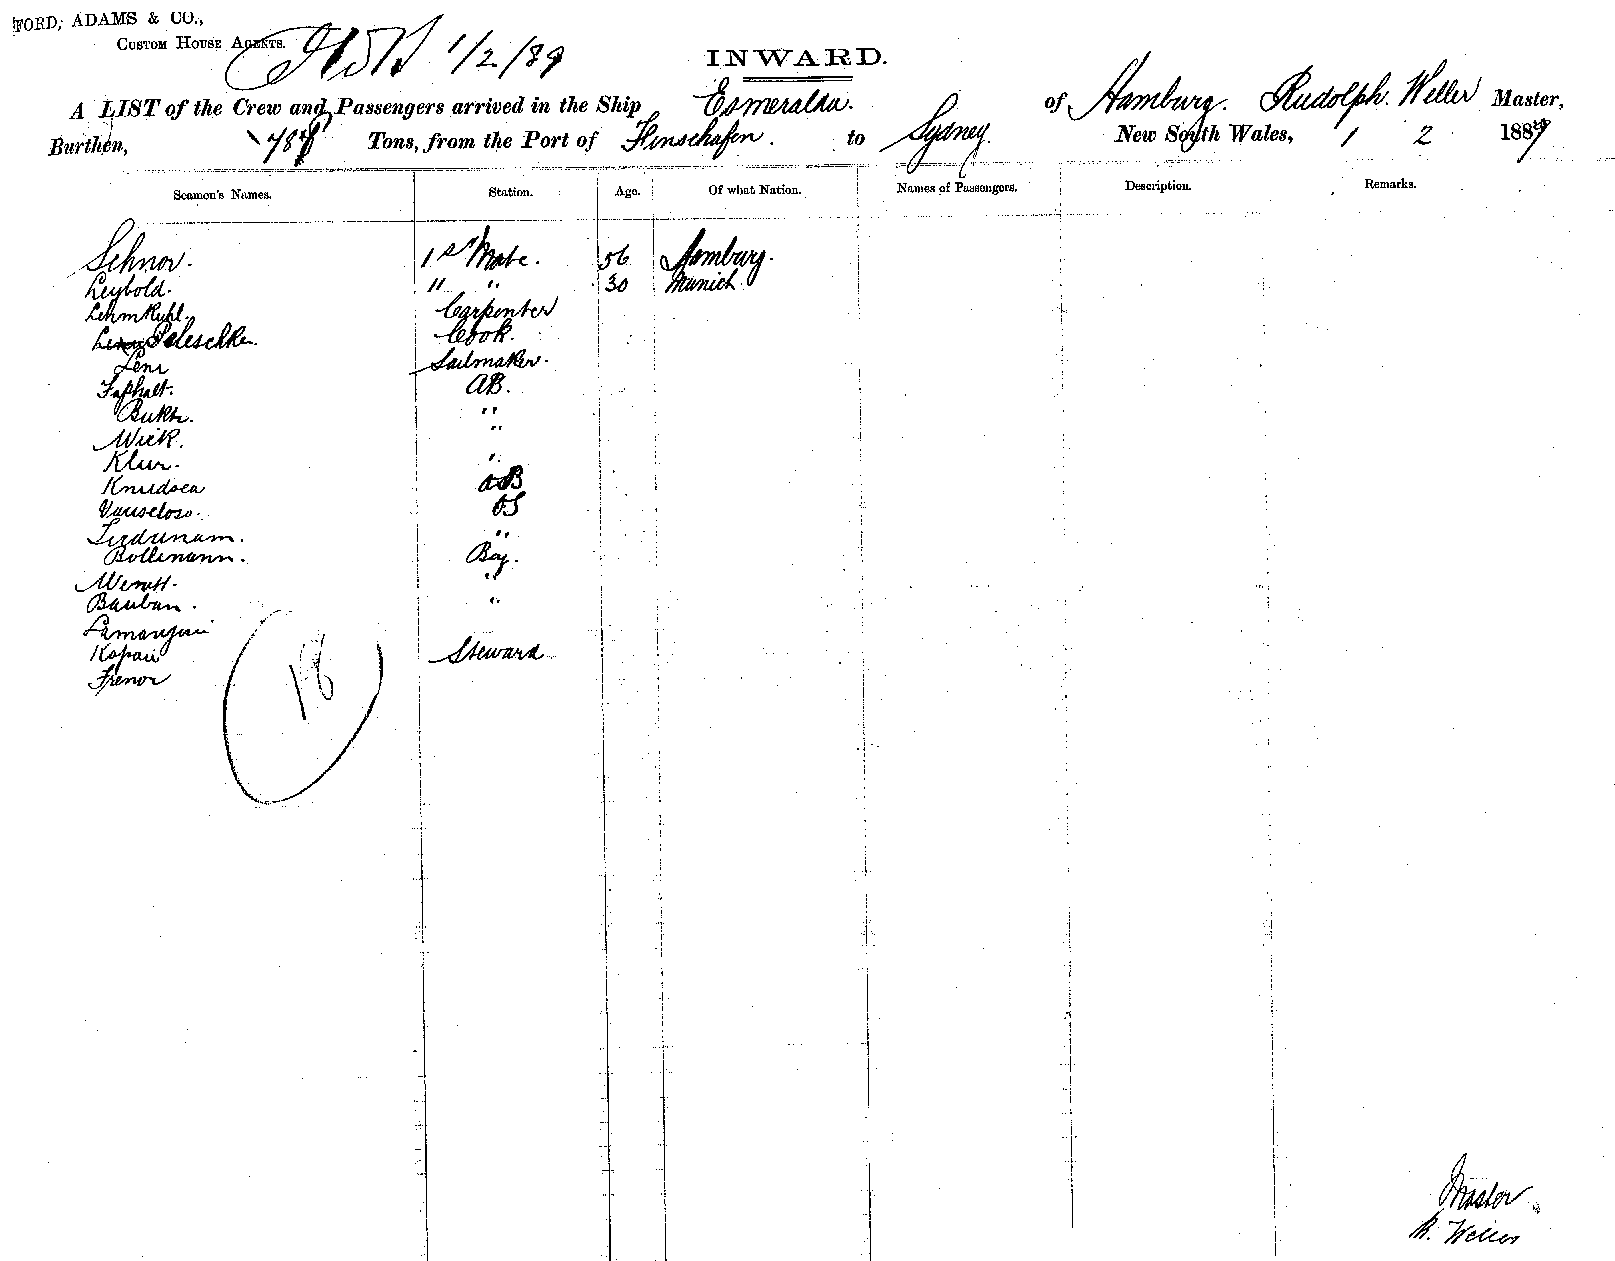 FORD, ADAMS & CO.,
CUSTOM HOUSE AGENTS.
1/2/89
INWARD.
A LIST of the Crew and Passengers arrived in the Ship Esmeralda. of Hamburg. Rudolph. Weller Master,
Burthen, 787 Tons, from the Port of Finschafen. to Sydney. New South Wales, 1 2 1889
Seamen's Names. Station. Age. Of what Nation. Names of Passengers. Description. Remarks.
Schnor. 1st Mate. 56 Hamburg.
Leybold. " " 30 Munich
Lehmkuhl. Carpenter
Peleschke. Cook.
Leni Sailmaker.
Faphalt. AB.
Bukh. "
Wick. "
Klur. "
Knudsen AB
OS
"
Bollmann. Boy.
"
Bauban. "
Kopan Steward
Frenor
18
Master
R. Weller